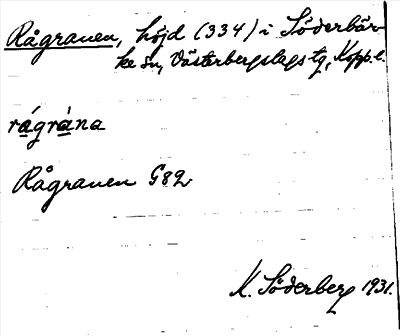 Rågranen, höjd (334) i Söderbär-
ke sn, Västerbergslags tg, Kopp. l.
rágrána
Rågranen G82
K. Söderberg 1931.